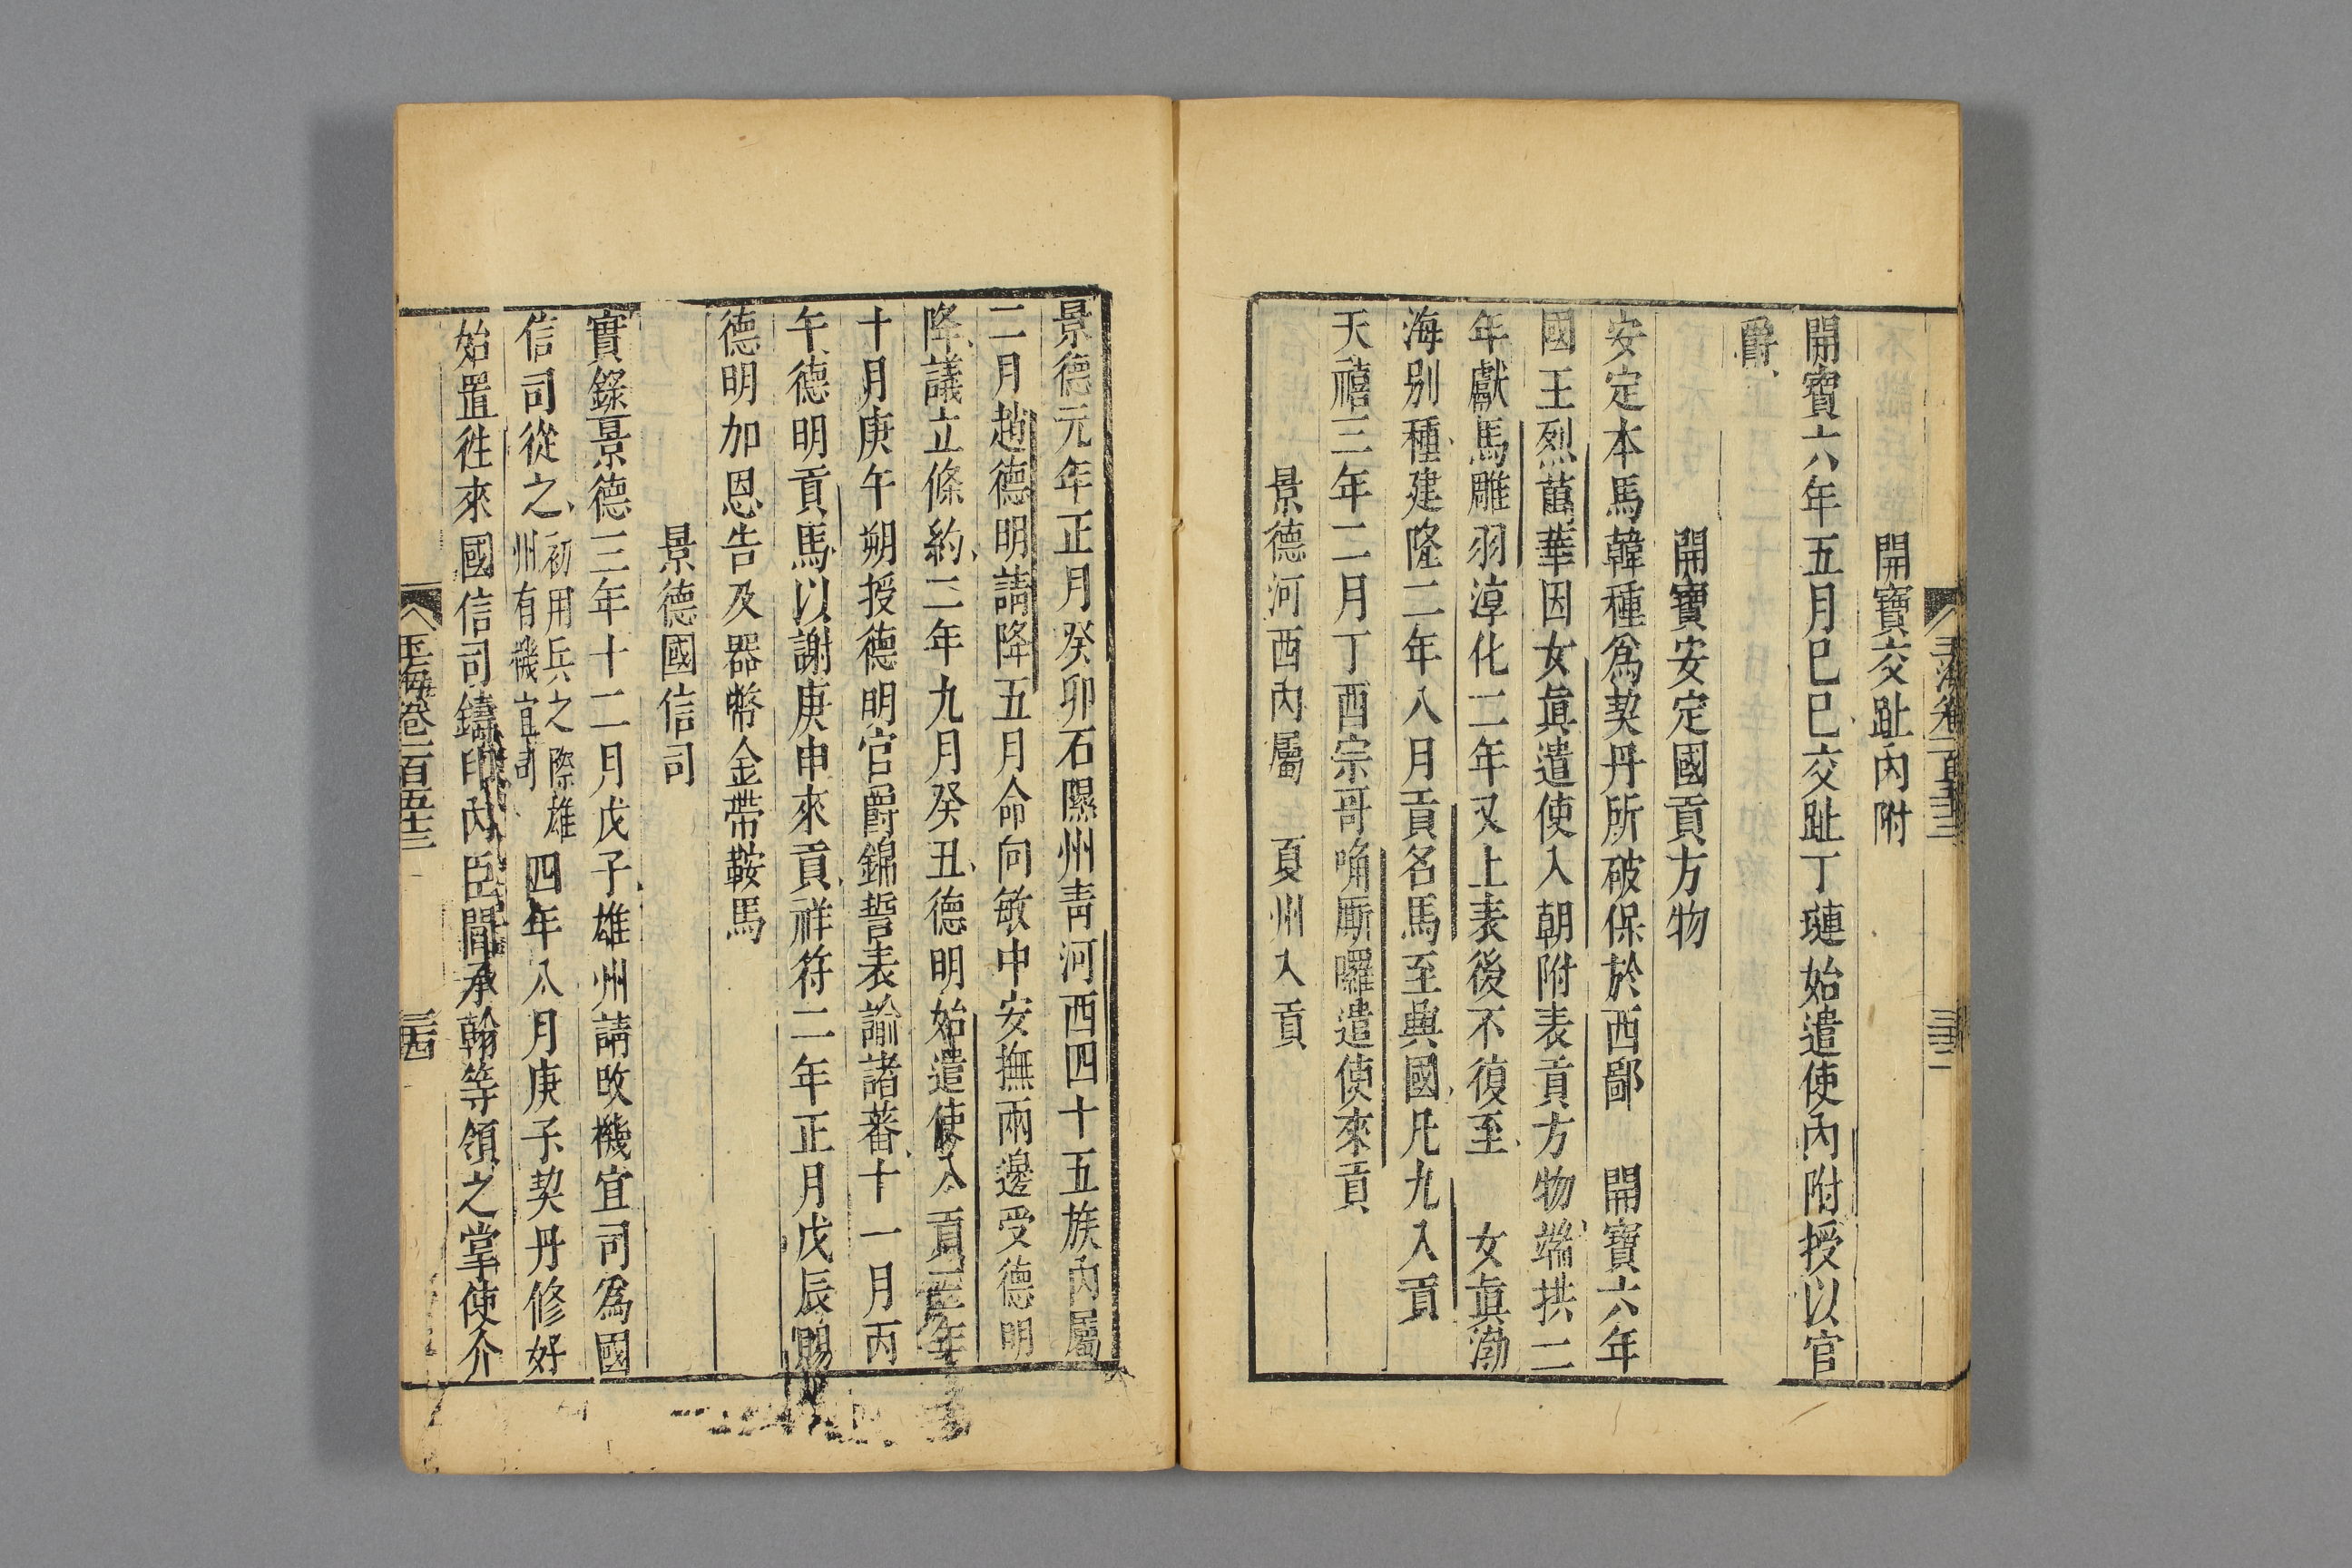 玉海卷一百五十三
三十三
開寶交趾內附
開寶六年五月己巳交趾丁璉始遣使內附授以官
爵
開寶安定國貢方物
安定本馬韓種爲契丹所破保於西鄙　開寶六年
國王烈萬華因女眞遣使入朝附表貢方物端拱二
年獻馬雕羽淳化二年又上表後不復至　女眞渤
海別種建隆二年八月貢名馬至興國凡九入貢
天禧三年二月丁酉宗哥唃厮囉遣使來貢
景德河西內屬　夏州入貢
景德元年正月癸卯石隰州言河西四十五族內屬
二月趙德明請降五月命向敏中安撫兩邊受德明
降議立條約二年九月癸丑德明始遣使入貢三年
十月庚午朔授德明官爵錦誓表諭諸蕃十一月丙
午德明貢馬以謝庚申來貢祥符二年正月戊辰賜
德明加恩告及器幣金帶鞍馬
景德國信司
實錄景德三年十二月戊子雄州請改機宜司爲國
信司從之初用兵之際雄州有機宜司四年八月庚子契丹修好
始置往來國信司鑄印內臣閻承翰等領之掌使介
玉海卷一百五十三
三十四